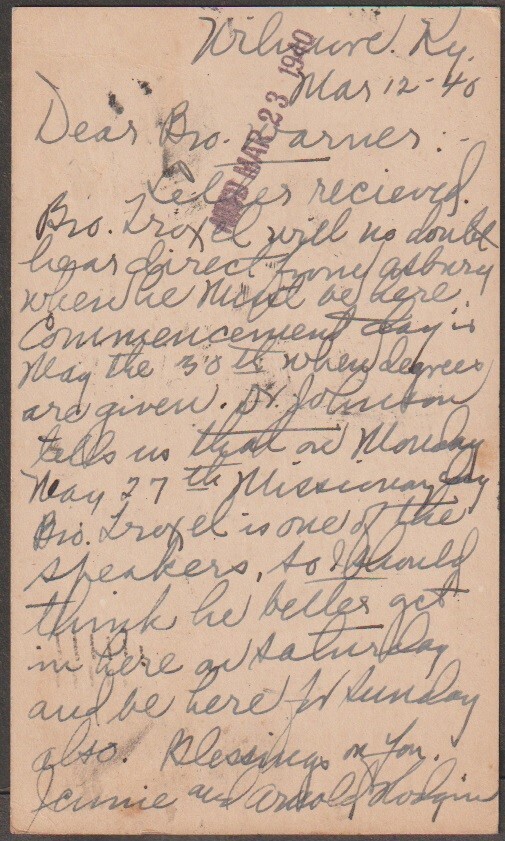 Wilmore. Ky.
Mar 12-40
MAR 23 1940
Dear Bro. Garner:-
Letter recieved.
Bro. Troxel will no doubt
hear direct from Asbury
when he must be here.
Commencement day is
May the 30th when degrees
are given. Dr. Johnson
tells us that on Monday
May 27th Missionary day
Bro. Troxel is one of the
speakers, so I should
think he better get
in here on Saturday
and be here for Sunday
also. Blessings on you.
Jennie and Arnold Hodgin